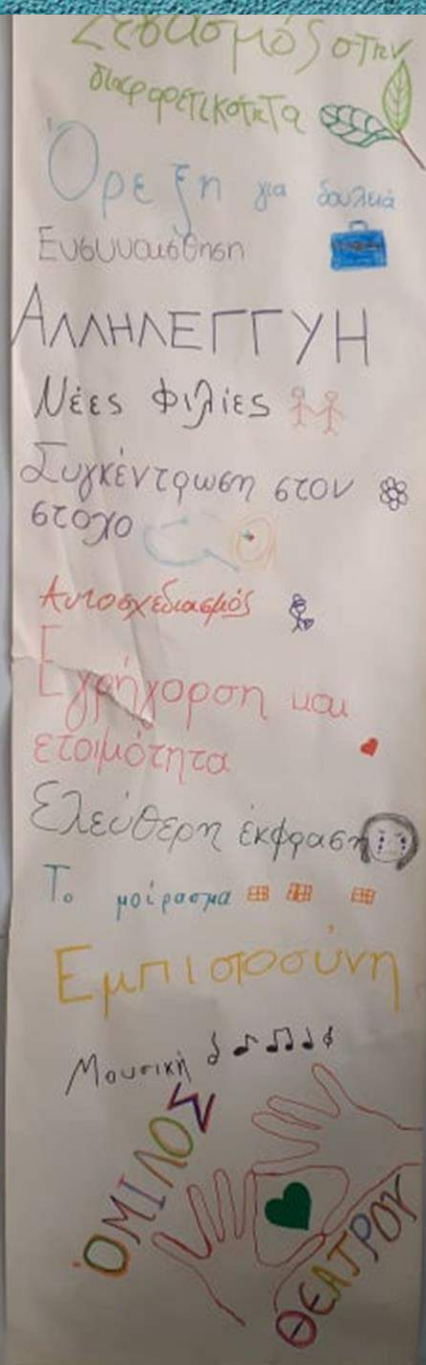 Σεβασμός στην
διαφορετικότητα
Όρεξη για δουλειά
Ενσυναίσθηση
ΑΛΛΗΛΕΓΓΥΗ
Νέες Φιλίες
Συγκέντρωση στον
στόχο
Αυτοσχεδιασμός
Εγρήγορση και
ετοιμότητα
Ελεύθερη έκφραση
Το μοίρασμα
Εμπιστοσύνη
Μουσική
ΌΜΙΛΟΣ
ΘΕΑΤΡΟΥ